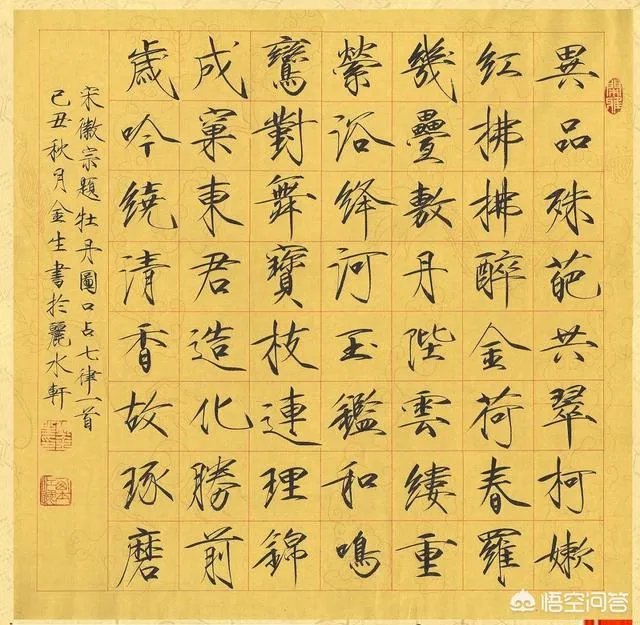 異品殊葩共翠柯嫩
红拂拂醉金荷春羅
幾疊敷丹陛雲縷重
縈浴绛河玉鑑和鳴
鸞對舞寶枝連理錦
成窠東君造化勝前
歲吟繞清香故琢磨
宋徽宗題牡丹圖口占七律一首
己丑秋月金生書於麗水軒
悟空问答